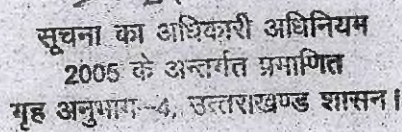 सूचना का अधिकारी अधिनियम
2005 के अन्तर्गत प्रमाणित
गृह अनुभाग-4, उत्तराखण्ड शासन।